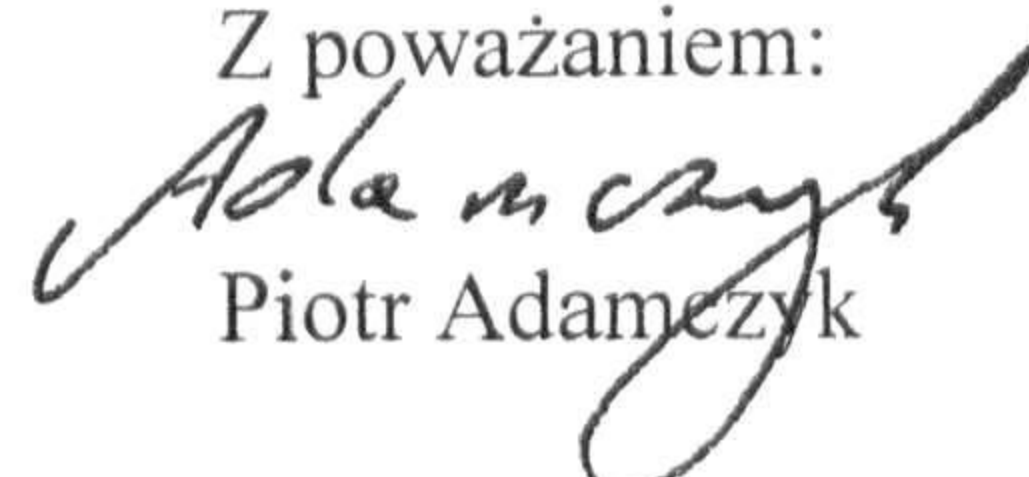 Z poważaniem:
Adamczyk
Piotr Adamczyk